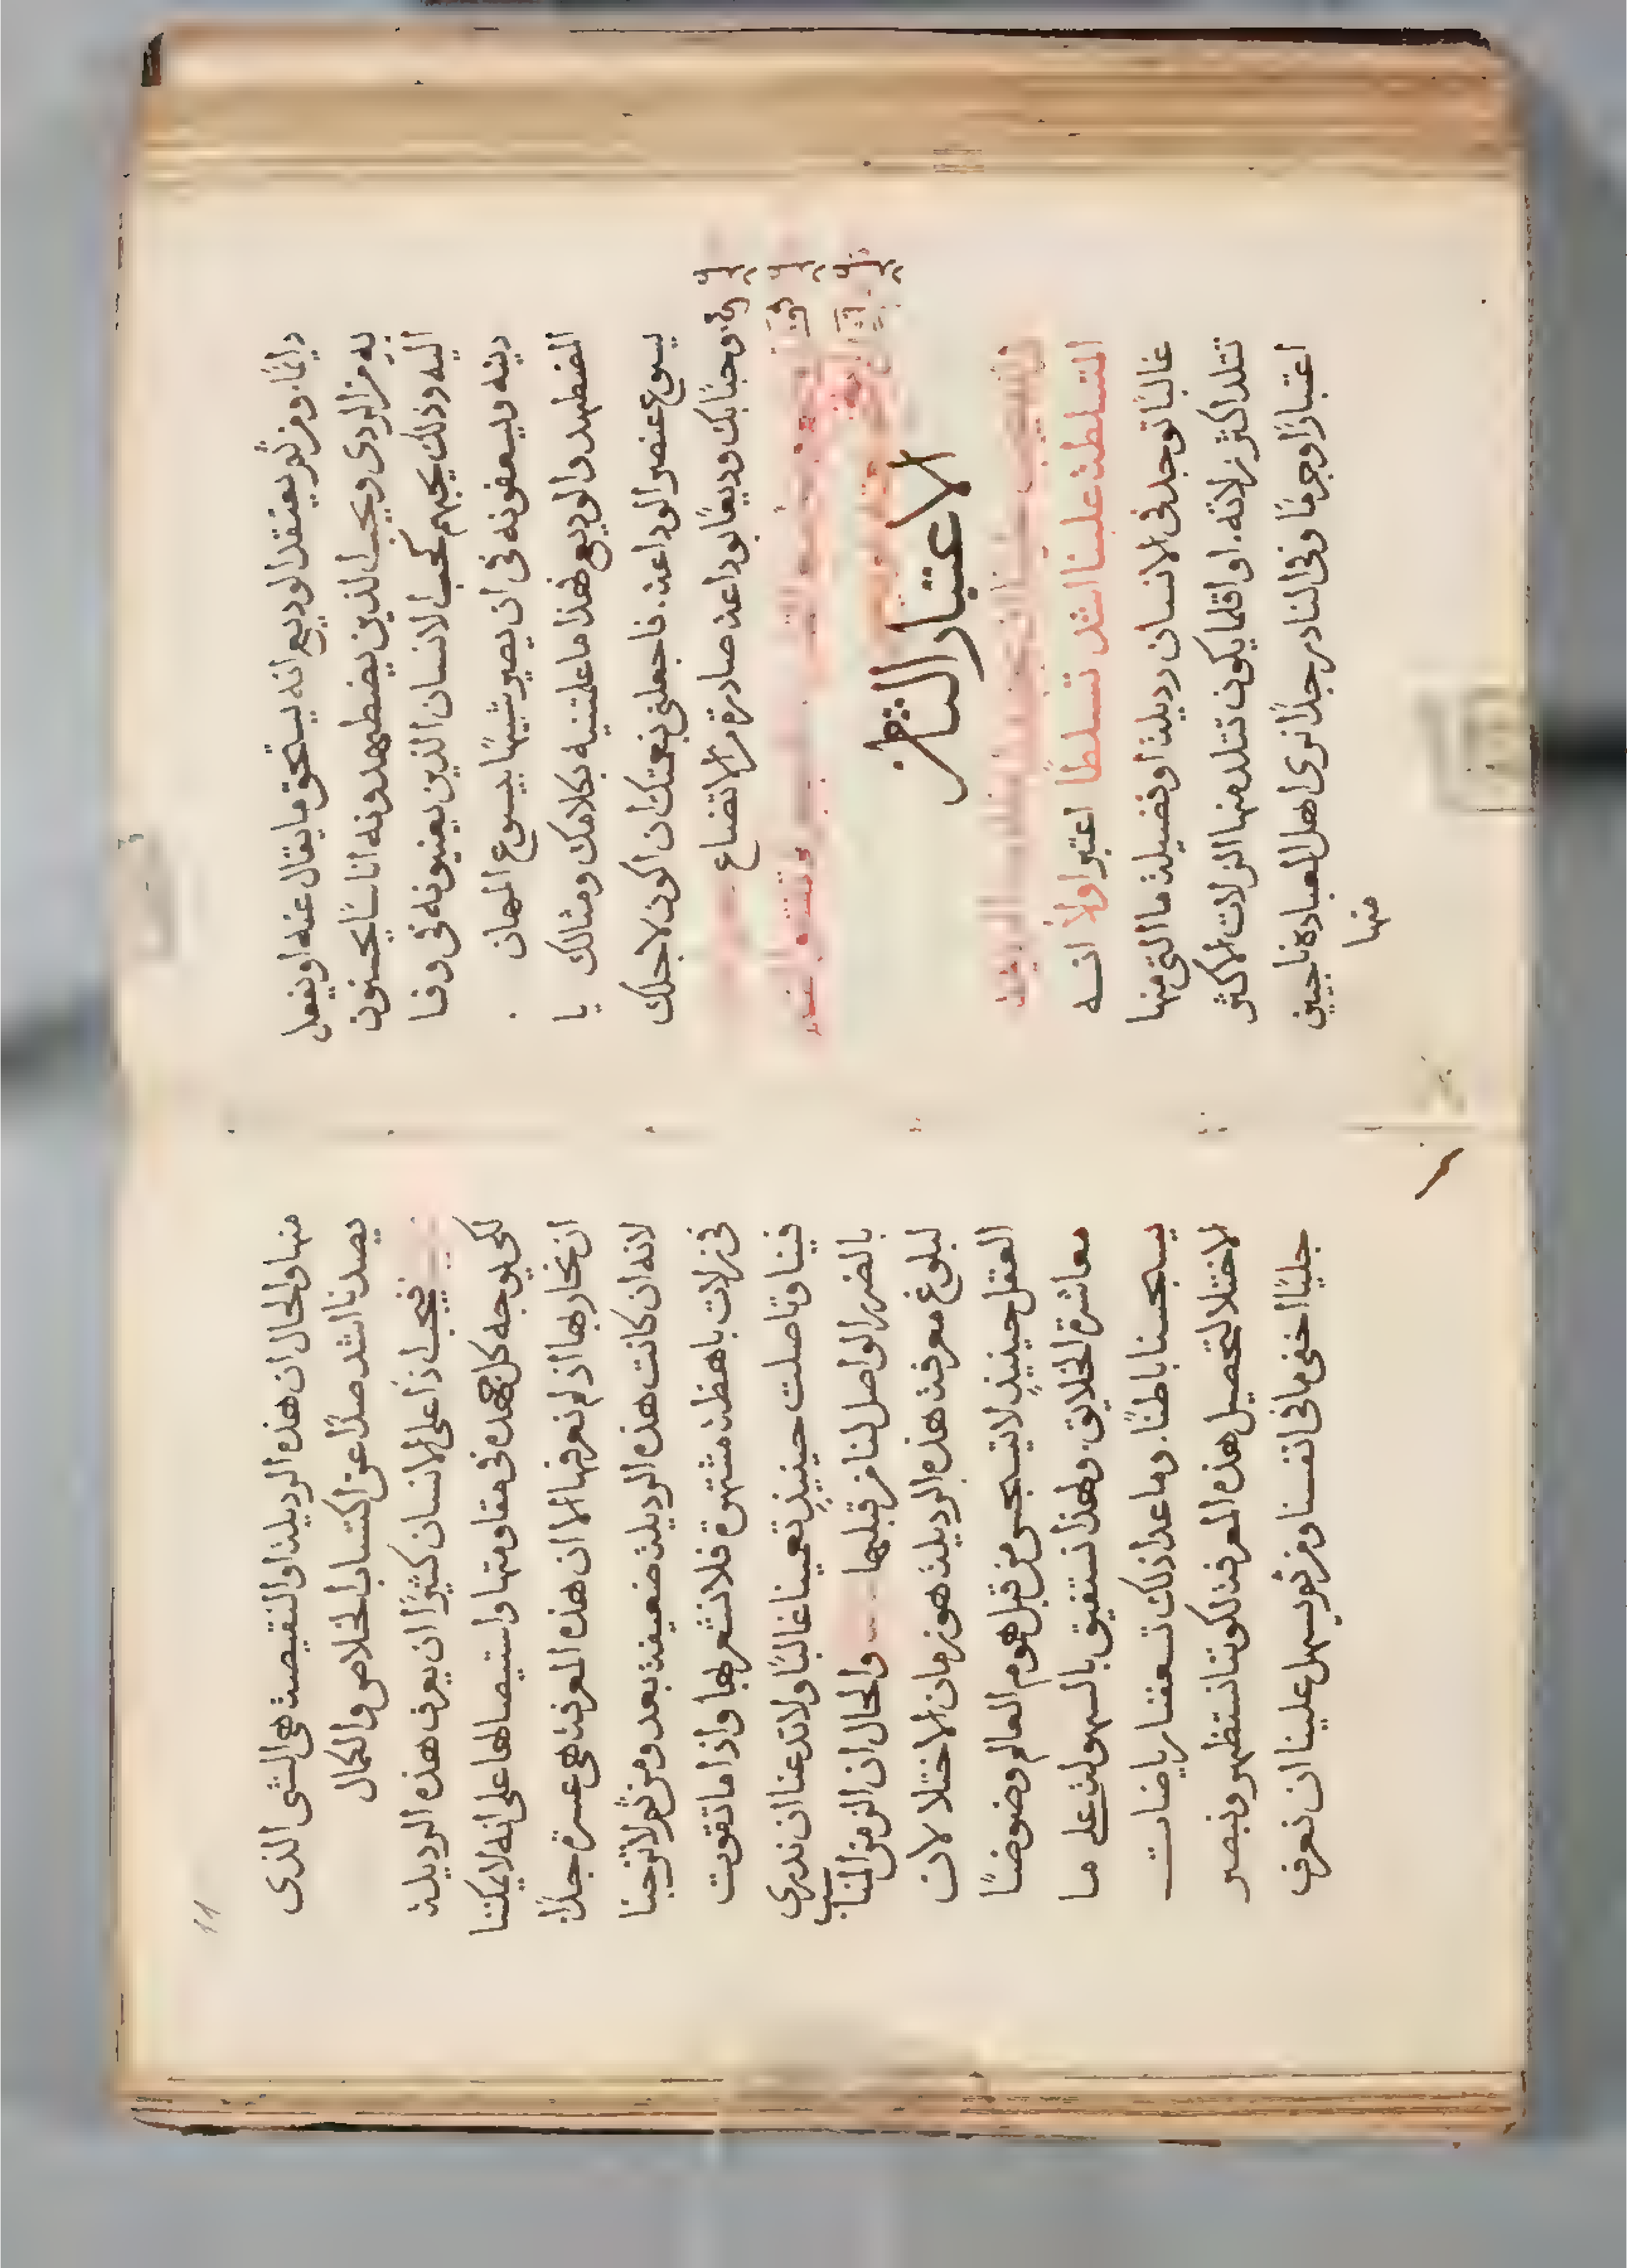 دايمًا. ومن ثم يعتقد الوديع انه يستحق ما يقال عنه او يفعل
به من الردى ويحب الذين يضطهدونه اناسًا يحسنون
اليه وذلك يحبهم كحب الانسان الذين يعينونه في وفا
دينه ويسعفونه في ان يصير شبيهًا بيسوع المهان
المضطهد والوديع فهذا ما علمتنيه بكلامك ومثالك يا
يسوع عنصر الوداعة. فاجعلني بنعمتك ان اكون لاجلك
ومحبًا بك وديعًا بوداعة صادرة من الاتضاع
الاعتبار الثامن
المتسلطة علينا اشد تسلطًا اعتبر اولًا انه
غالبًا توجد في الانسان رديلة او نقيصة ما التي منها
تتلد اكثر زلاته. او اقلما يكون تتلد منها الزلات الاكثر
اعتبارًا وجرمًا وفي النادر جدًا نرى اهل العبادة ناجيين
منها
11
منها والحال ان هذه الرديلة او النقيصة هي الشي الذي
يصدنا اشد صدًا عن اكتساب الخلاص والكمال
فيجب اذًا على الانسان كثيرًا ان يعرف هذه الرديلة
لكي يوجه كل جهده في مقاومتها واستيصالها على انه لا يمكننا
ان نحاربها اذ لم نعرفها الا ان هذه المعرفة هي عسرة جدًا
لانه ان كانت هذه الرديلة ضعيفة بعد ومن ثم لا ترجنا
في زلات باهظة مشتهرة فلا نشعر بها واذا ما تقوت
فينا وتاصلت حينيذٍ تعمينا غالبًا ولا تدعنا ان ندرى
بالضرر الواصل لنا من قبلها والحال ان الزمن المناسب
لبلوغ معرفة هذه الرديلة هو زمان الاختلا لان
العقل حينيذٍ لا يتسجس من قبل هموم العالم وضوضا
معاشرة الخلايق. ولهذا نستفيق بالسهولة على ما
يسجسنا باطنًا. وما عدا ذلك تسعفنا رياضات
الاختلا لتحصيل هذه المعرفة لكوننا نستظهر ونبصر
جليًا اخفى ما في انفسنا ومن ثم يسهل علينا ان نعرف